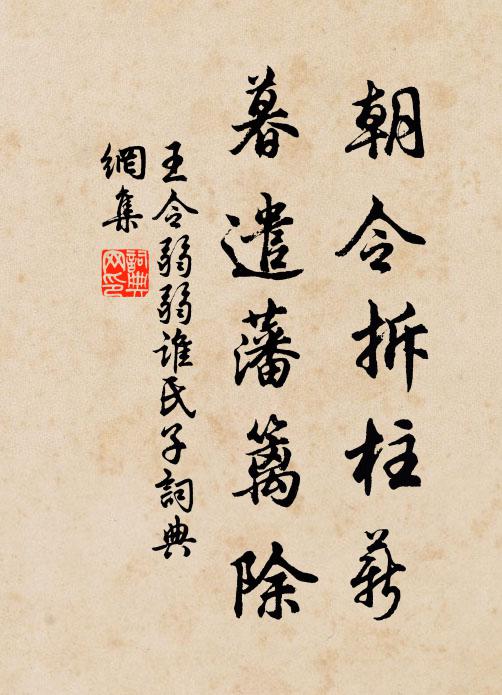 朝令拆柱薪
暮遣藩篱除
王令弱弱谁氏子詞典
網集
詞典网印